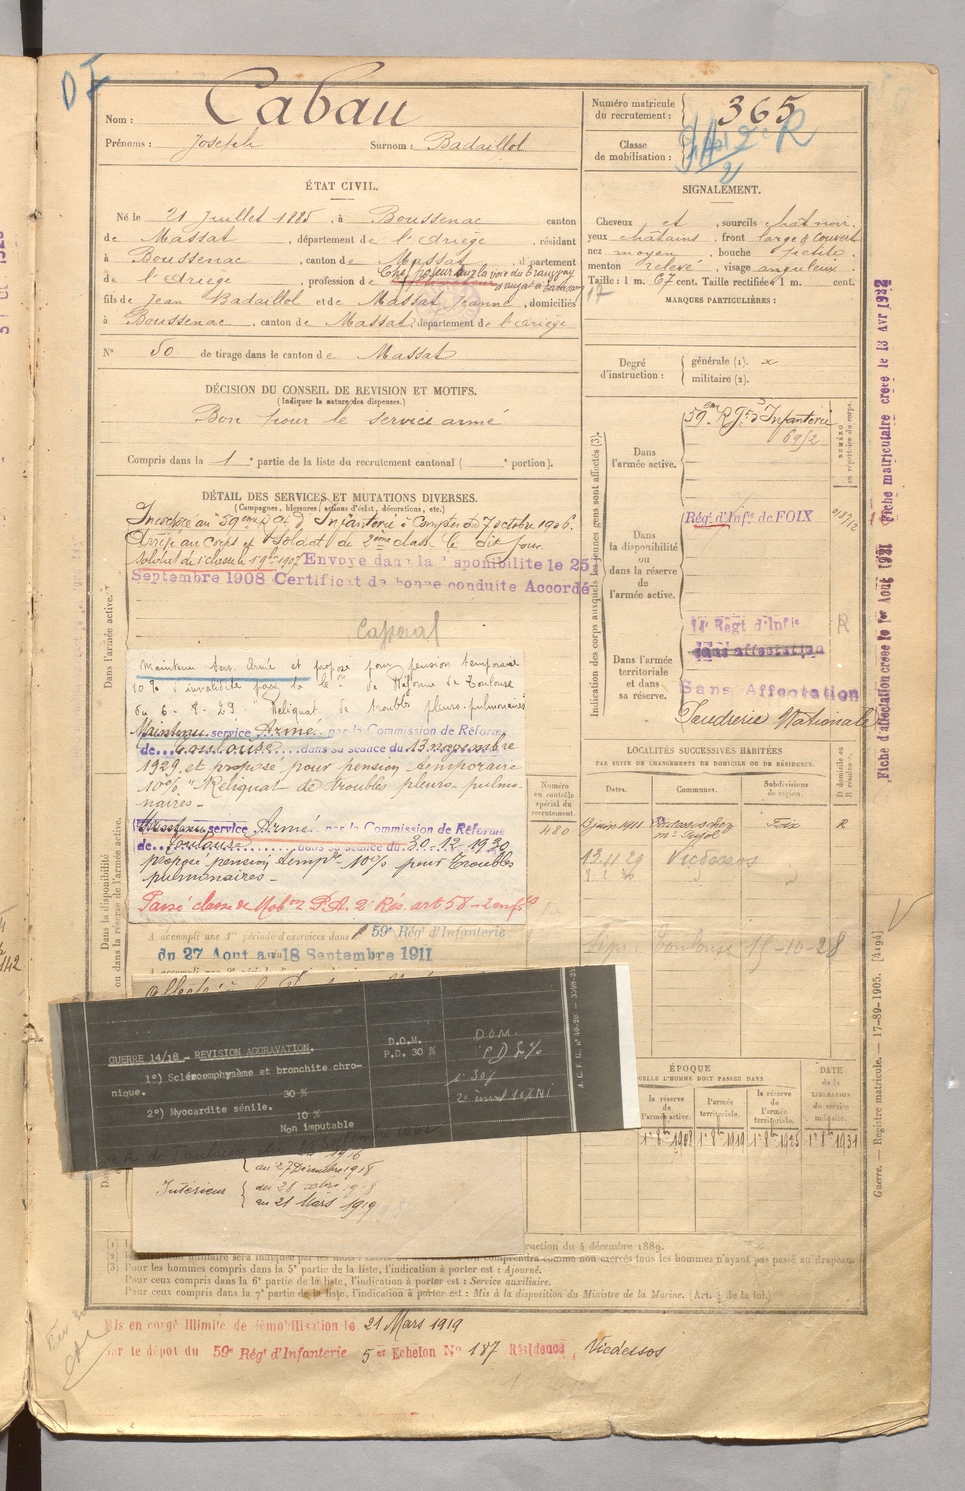 Nom : Cabau
Prénoms : Joseph Surnom : Badaillol
Numéro matricule du recrutement : 365
Classe de mobilisation :
ÉTAT CIVIL.
Né le 21 Juillet 1885, à Boussenac canton
de Massat, département de l'Ariège, résidant
à Boussenac, canton de Massat, département
de l'Ariège, profession de Chef poseur
fils de Jean Badaillol et de Massat Jeanne, domiciliés
à Boussenac, canton de Massat, département de l'Ariège
N° 50 de tirage dans le canton de Massat
DÉCISION DU CONSEIL DE REVISION ET MOTIFS.
(Indiquer la nature des dispenses.)
Bon pour le service armé
Compris dans la 1e partie de la liste du recrutement cantonal ( e portion).
DÉTAIL DES SERVICES ET MUTATIONS DIVERSES.
(Campagnes, blessures, actions d'éclat, décorations, etc.)
Incorporé au 59eme Rgt d'Infanterie à compter du 7 octobre 1906.
Arrivé au corps et soldat de 2ème classe le dit jour.
Soldat de 1e classe le 19 1907 Envoyé dans la disponibilité le 25
Septembre 1908 Certificat de bonne conduite Accordé
Caporal
Maintenu serv. Armé et proposé pour pension temporaire
10% d'invalidité par la de Réforme de Toulouse
du 6-8-29 "Reliquat de troubles pleuro-pulmonaires
Maintenu service Armé par la Commission de Réforme
de Toulouse dans sa séance du 13 novembre
1929 et proposé pour pension temporaire
10% "Reliquat de troubles pleuro-pulmo-
naires -
Maintenu service Armé par la Commission de Réforme
de Toulouse dans sa séance du 30-12-1930
propose pension temp 10% pour Troubles
pulmonaires -
Passé classe de Mob on P.A. 2e Rés. art 58 - 2 enfts
A accompli une 1re période d'exercices dans le 59e Rég t d'Infanterie
du 27 Aout au 18 Septembre 1911
GUERRE 14/18 - REVISION AGGRAVATION.
1°) Scléroemphysème et bronchite chro-
nique. 30 %
2°) Myocardite sénile.
10 %
Non imputable
D.O.M.
P.D. 30 %
D.O.M.
P.D. 30 %
au 27 Décembre 1918
Intérieur du 28 1918
au 21 Mars 1919
Dans l'armée active.
Dans la disponibilité
ou dans la réserve de l'armée active.
SIGNALEMENT.
Cheveux et , sourcils chât noir,
yeux châtains, front large & couvert
nez moyen, bouche petite,
menton relevé, visage anguleux.
Taille : 1 m. 67 cent. Taille rectifiée 1 m. cent.
MARQUES PARTICULIÈRES :
Degré d'instruction :
générale (1). x
militaire (2).
Indication des corps auxquels les jeunes gens sont affectés (3).
NUMÉRO au répertoire du corps.
Dans l'armée active.
59em Rgt d'Infanterie
69/2
Dans la disponibilité ou dans la réserve de l'armée active.
Rég t d'Inf ie de FOIX
Dans l'armée territoriale et dans sa réserve.
14e Regt d'Inf ie
Sans affectation
Sans Affectation
Poudrerie Nationale
LOCALITÉS SUCCESSIVES HABITÉES
PAR SUITE DE CHANGEMENTS DE DOMICILE OU DE RÉSIDENCE.
Numéro au contrôle spécial du recrutement.
Dates.
Communes.
Subdivisions de région.
D domicile ou R résidence.
480
Juin 1911 Foix R
13.11.29 Vicdessos
Toulouse 15-10-28
ÉPOQUE
A LAQUELLE L'HOMME DOIT PASSER DANS
la réserve de l'armée active.
l'armée territoriale.
la réserve de l'armée territoriale.
DATE de la LIBÉRATION du service militaire.
1er 8bre 1908 1er 8bre 1919 1er 8bre 1925 1er 8bre 1931
Fiche matriculaire créée le 13 Avr 1922
Fiche d'affectation créée le 1er Aout 1921
Guerre. — Registre matricule. — 17-89-1905. [4194]
ruction du 4 décembre 1889.
comprendra comme non exercés tous les hommes n'ayant pas passé au drapeau.
(3) Pour les hommes compris dans la 5e partie de la liste, l'indication à porter est : Ajourné.
Pour ceux compris dans la 6e partie de la liste, l'indication à porter est : Service auxiliaire.
Pour ceux compris dans la 7e partie de la liste, l'indication à porter est : Mis à la disposition du Ministre de la Marine. (Art. 4 de la loi.)
Mis en congé illimité de démobilisation le 21 Mars 1919
par le dépôt du 59e Rég t d'Infanterie 5e Echelon N° 187 Résidence, Vicdessos